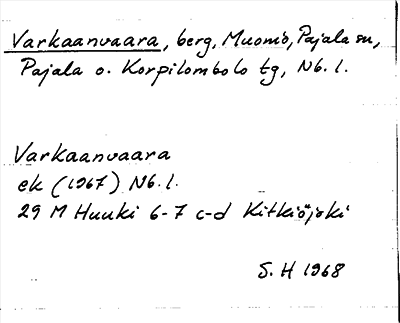 Varkaanvaara, berg, Muonio, Pajala sn,
Pajala o. Korpilombolo tg, Nb. l.
Varkaanvaara
ek (1967) Nb. l.
29 M Huuki 6-7 c-d Kitkiöjoki
S. H 1968